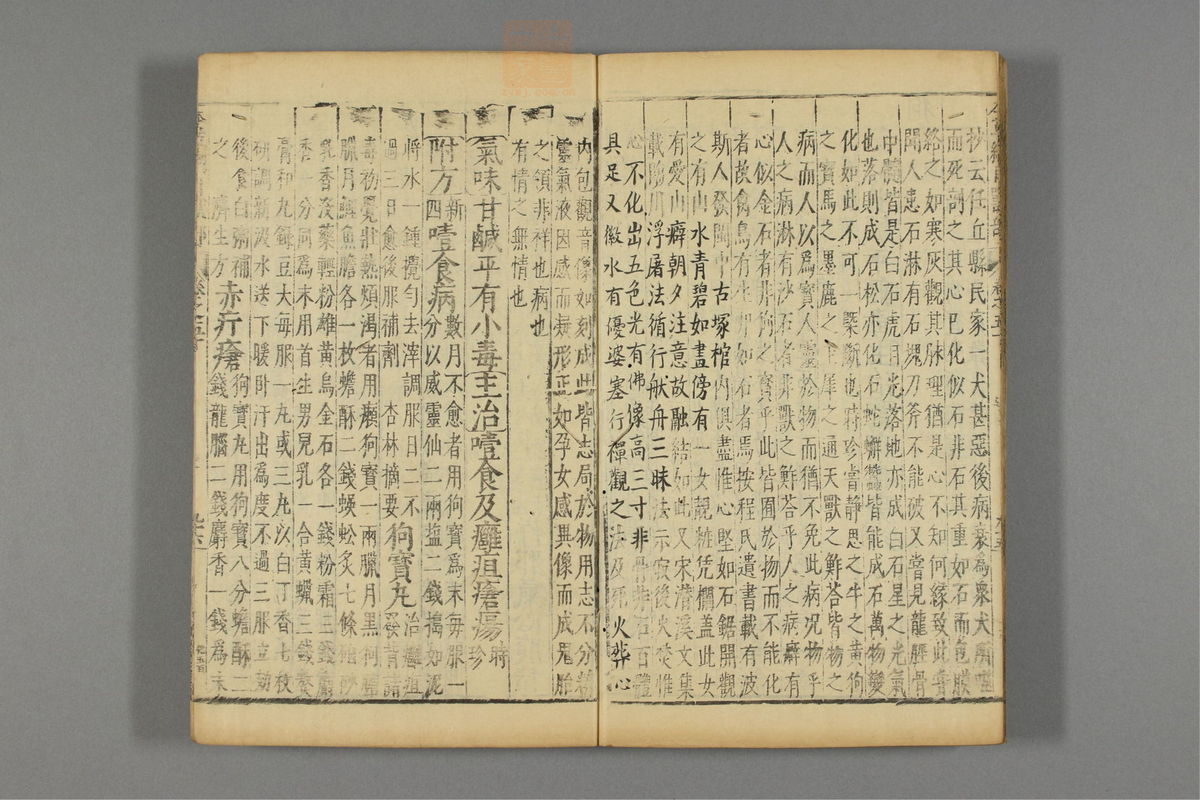 抄云任丘縣民家一犬甚惡後病衰為衆犬所噬
而死剖之其心已化似石非石其重如石而包膜
絡之如寒灰觀其脉理猶是心不知何緣致此嘗
聞人患石淋有石塊刀斧不能破又嘗見龍脛骨
中髓皆是白石虎目光落地亦成白石星之光氣
也落則成石松亦化石蛇蠏蠶皆能成石萬物變
化如此不可一槩斷也時珍嘗静思之牛之黄狗
之寶馬之墨鹿之玉犀之通天獸之鮓荅皆物之
病而人以為寶人靈於物而猶不免此病况物乎
人之病淋有沙石者非獸之鮓荅乎人之病癖有
心似金石者非狗之寶乎此皆囿於物而不能化
者故禽鳥有生卵如石者焉按程氏遺書載有波
斯人發閩中古塚棺内俱盡惟心堅如石鋸開觀
之有山水青碧如畫傍有一女靚粧凭欄盖此女
有愛山癖朝夕注意故融結如此又宋濓溪文集
載臨川浮屠法循行般舟三昧法示寂後火焚惟
心不化出五色光有佛像高三寸非骨非石百體
具足又徽水有優婆塞行禪觀之法及死火葬心
内包觀音像如刻成此皆志局於物用志不分精
靈氣液因感而凝形正如孕女感異像而成鬼胎
之類非祥也病也
有情之無情也
氣味甘鹹平有小毒主治噎食及癰疽瘡瘍時珍
附方新四噎食病數月不愈者用狗寶為末毎服一
分以威靈仙二兩塩二錢搗如泥
將水一鍾攪勻去滓調服日二不
過三日愈後服補劑 杏林摘要狗寶丸治癰疽
發背諸
毒初覺壯熱煩渴者用癩狗寶一兩臘月黑狗膽
臘月鯉魚膽各一枚蟾酥二錢蜈蚣炙七條硇砂
乳香没藥輕粉雄黄烏金石各一錢粉霜三錢麝
香一分同為末用首生男兒乳一合黄蠟三錢熬
膏和丸菉豆大毎服一丸或三丸以白丁香七枚
研調新汲水送下暖卧汗出為度不過三服立効
後食白粥補
之 濟生方赤疔瘡狗寶丸用狗寶八分蟾酥二
錢龍腦二錢麝香一錢為末